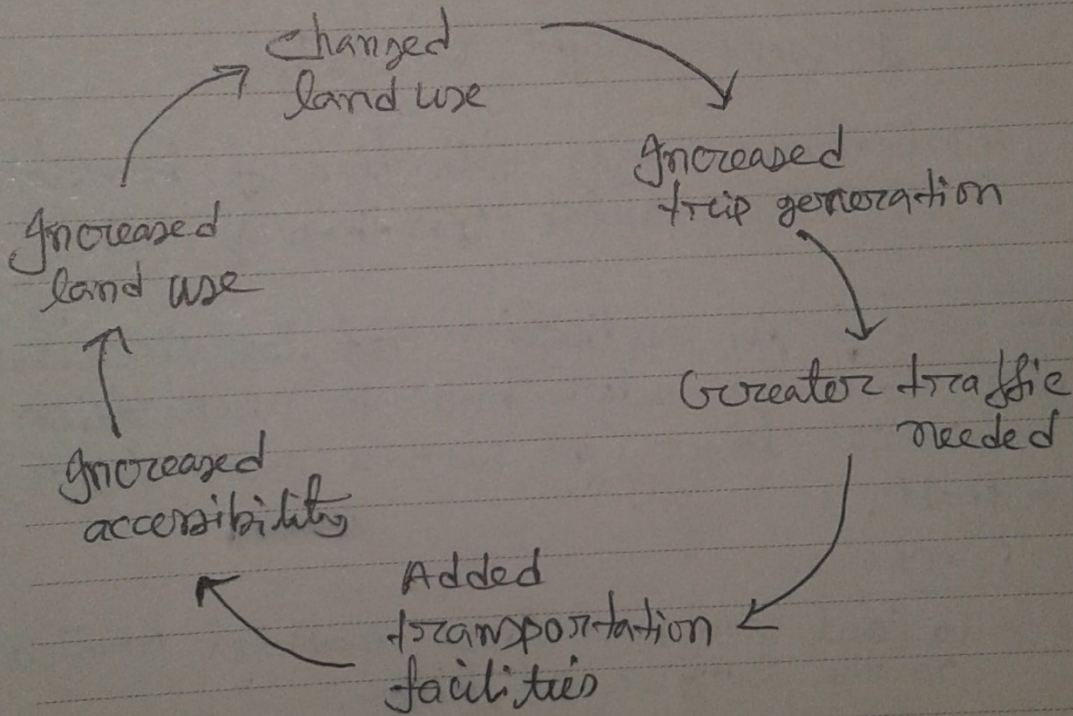 Changed
land use
Increased
trip generation
Greater traffic
needed
Added
transportation
facilities
Increased
accessibility
Increased
land use